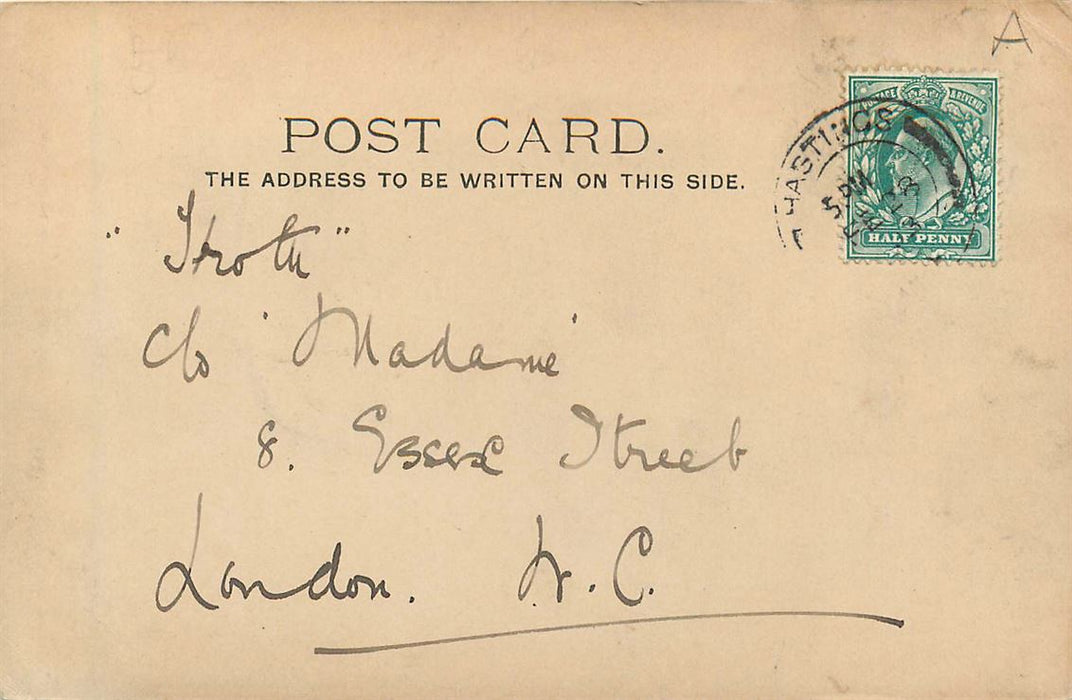 A
POST CARD.
THE ADDRESS TO BE WRITTEN ON THIS SIDE.
POSTAGE & REVENUE
HALF PENNY
HASTINGS
5 PM
c/o 'Madame'
8. Essex Street
London. W.C.